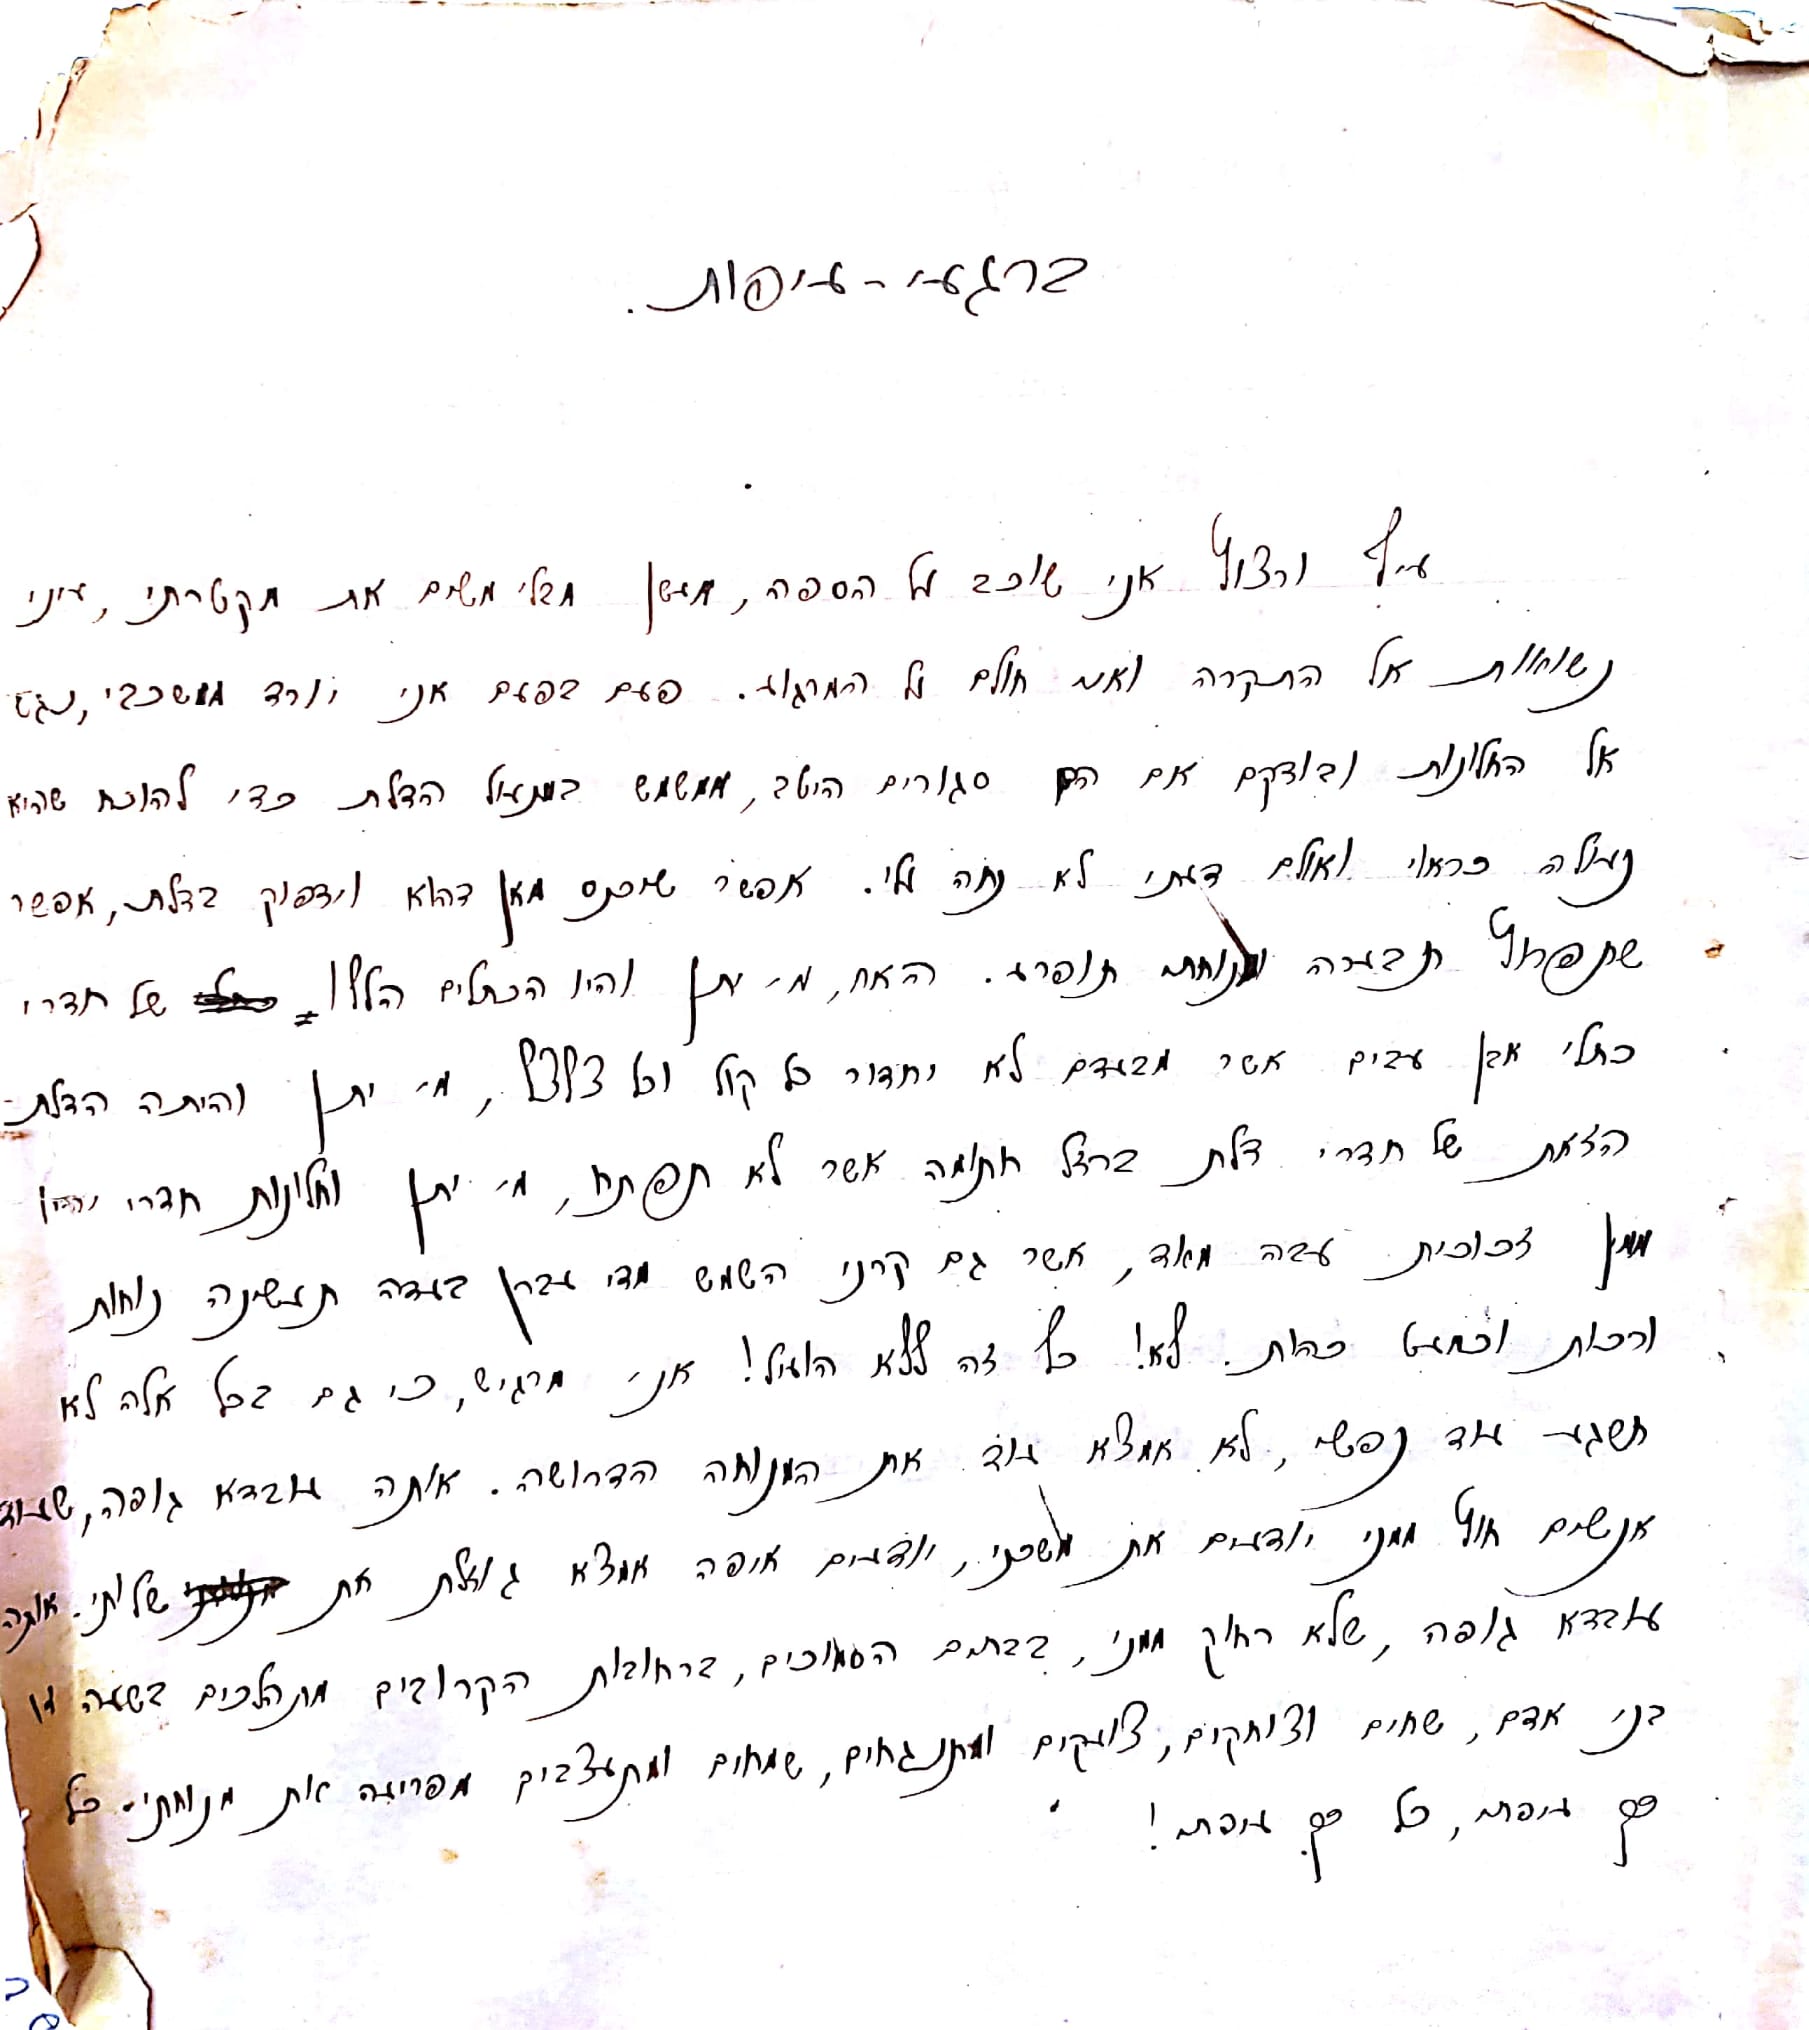 ברגעי-עיפות.
עיף ורצוץ אני שוכב על הספה, מעשן מבלי משים את מקטרתי, עיני
נשואות אל התקרה ואני חולם על המרגוע. פעם בפעם אני יורד ממשכבי, נגש
אל החלונות ובודקם אם הם סגורים היטב, ממשמש במנעול הדלת כדי להוכח שהיא
נעולה כראוי ואולם דעתי לא נחה עלי. אפשר שיכנס מאן דהוא וידפוק בדלת, אפשר
שתפרוץ תבערה ומנוחתי תופרע. האח, מי יתן והיו הכתלים הללו של חדרי
כתלי אבן עבים אשר מבעדם לא יחדור כל קול וכל צלצל, מי יתן והיתה הדלת
הזאת של חדרי דלת ברזל חתומה אשר לא תפתח, מי יתן וחלונות חדרי יהיו
ממין זכוכית עבה מאוד, אשר גם קרני השמש מדי עברן בעדה תעשינה נוחות
ורכות וכמעט כהות. לא! כל זה ללא הועיל! אני מרגיש, כי גם בכל אלה לא
תשגע עוד נפשי, לא אמצא עוד את המנוחה הדרושה. אותה עובדא גופה, שעוד
אנשים חוץ ממני יודעים את משכני, יודעים איפה אמצא גוזלת את שלותי. אותה
עובדא גופה, שלא רחוק ממני, בבתים הסמוכים, ברחובות הקרובים מתהלכים בשעה זו
בני אדם, שחים וצוחקים, צועקים ומתנגחים, שמחים ומתעצבים מפריעה את מנוחתי. כל
כך עיפתי, כל כך עיפתי!